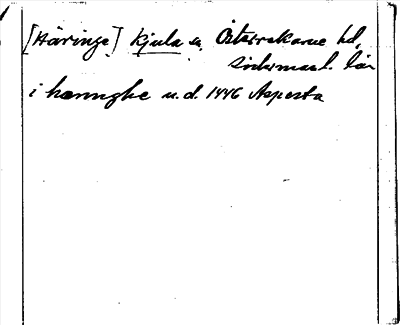 [Häringe] Kjula sn Österrekarne hd,
Södermanl. län
i hæringhe u.d. 1446 Aspesta